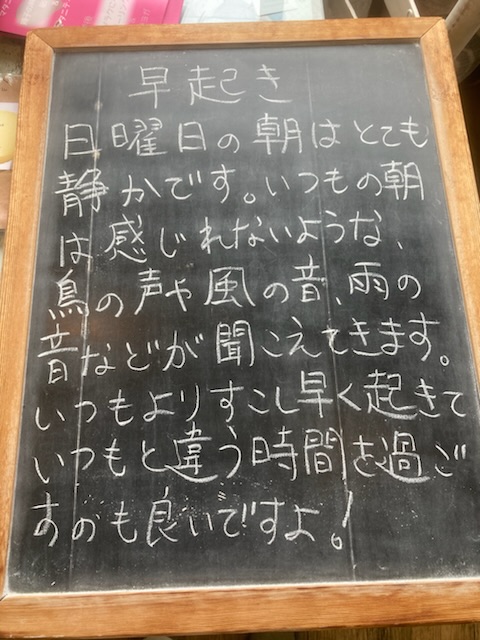 早起き
日曜日の朝はとても
静かです。いつもの朝
は感じれないような、
鳥の声や風の音、雨の
音などが聞こえてきます。
いつもよりすこし早く起きて
いつもと違う時間を過ご
すのも良いですよ!